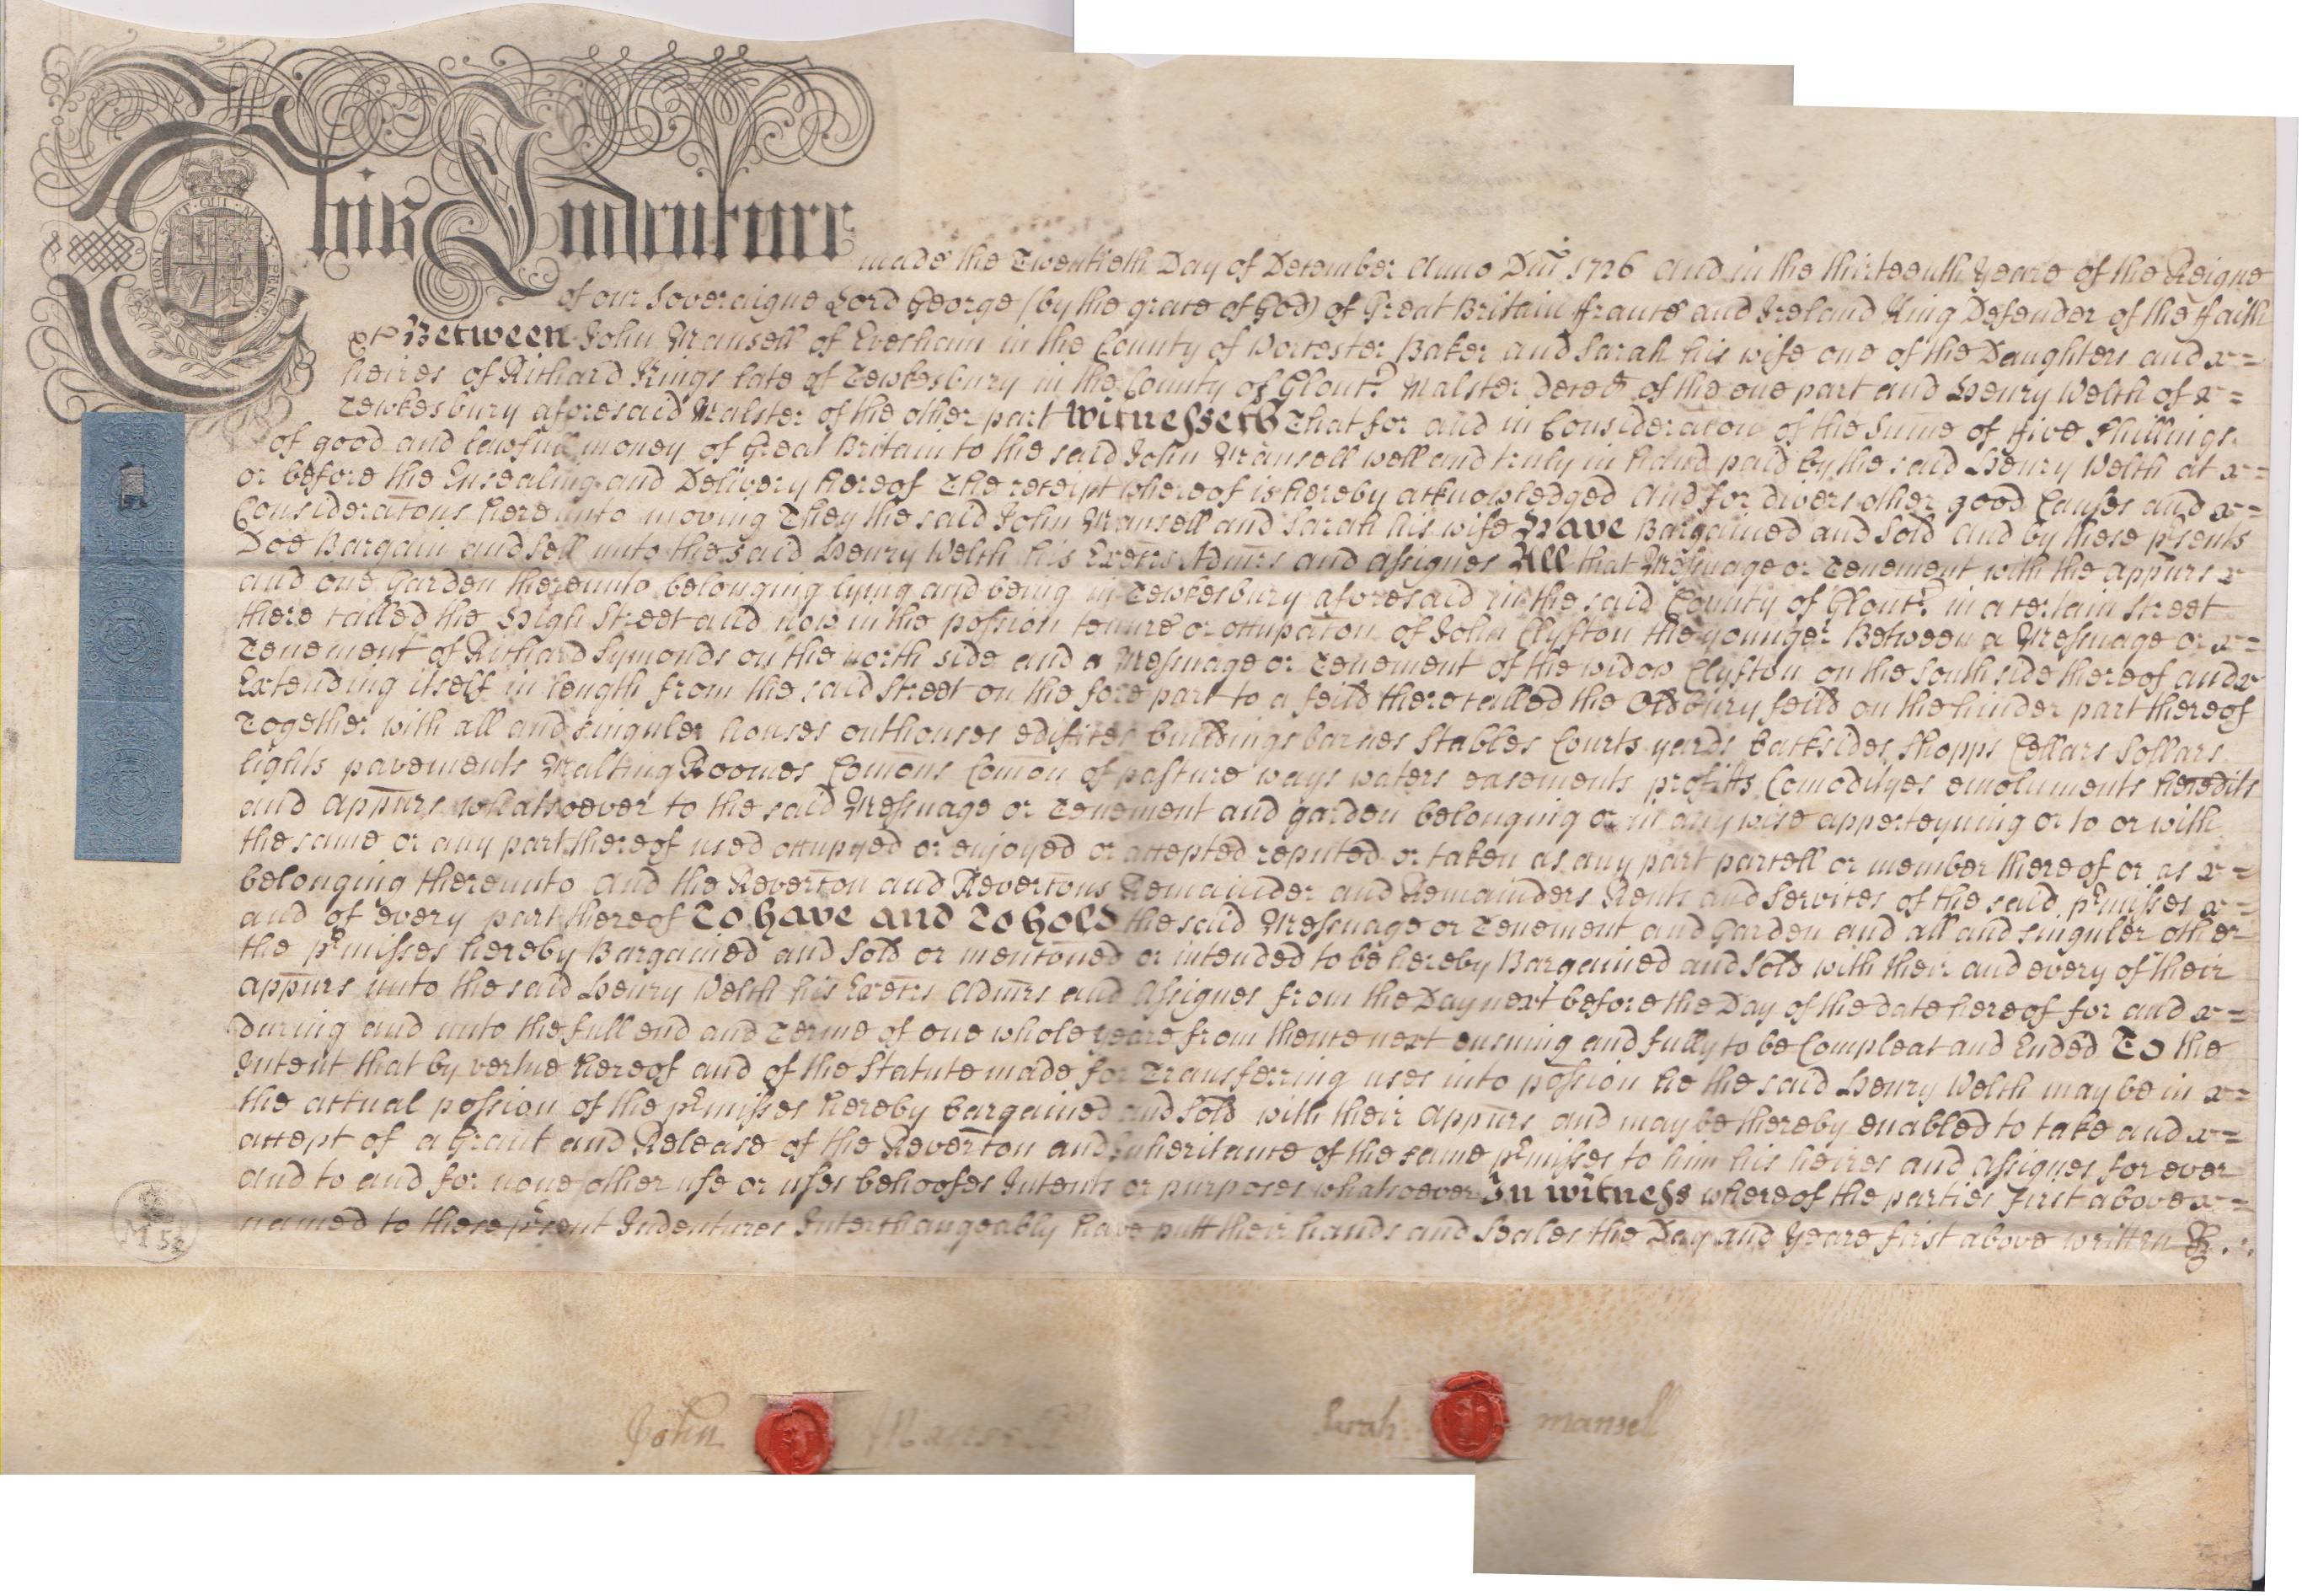 This Indenture made the Twentieth Day of December Anno Dni 1726 And in the thirteenth Yeare of the Reigne
of our Soveraigne Lord George (by the grace of God) of Great Britain ffrance and Ireland King Defender of the ffaith
&c Between John Mansell of Evesham in the County of Worcester Baker and Sarah his wife one of the Daughters and x=
heires of Richard Kings late of Tewkesbury in the County of Glouc^r Malster deced of the one part and Henry Welch of x=
Tewkesbury aforesaid Malster of the other part Witnesseth That for and in Consideracon of the Summe of ffive Shillings
of good and lawfull money of Great Britain to the said John Mansell well and truly in hand paid by the said Henry Welch at x=
or before the Ensealing and Delivery hereof The receipt whereof is hereby acknowledged And for divers other good Causes and x=
Consideracons hereunto moving They the said John Mansell and Sarah his wife Have Bargained and Sold and by these psents
Doe Bargain and Sell unto the said Henry Welch his Execrs Admrs and assignes All that Messuage or Tenement with the appurs x
and one Garden thereunto belonging lying and being in Tewkesbury aforesaid in the said County of Glouc^r in a certain Street
there called the High Street and now in the possion tenure or occupacon of John Clyfton the younger Between a Messuage or x=
Tenement of Richard Symonds on the north side and a Messuage or Tenement of the widow Clyfton on the South side thereof and x
Extending itself in length from the said Street on the fore part to a feild there called the Oldbury feild on the hinder part thereof
Together with all and singuler houses outhouses edifices buildings barnes Stables Courts yards backsides Shopps Cellars Sollars
lights pavements Malting Roomes Comons Comon of pasture ways waters easements profitts Comodityes emoluments heredits
and appurs whatsoever to the said Messuage or Tenement and garden belonging or in any wise apperteyning or to or with
the same or any part thereof used occupyed or enjoyed or accepted reputed or taken as any part parcell or member thereof or as x=
belonging thereunto And the Revercon and Revercons Remainder and Remainders Rents and Services of the said p^rmisses x=
and of every part thereof To Have and To Hold the said Messuage or Tenement and Garden and all and singuler other
the p^rmisses hereby Bargained and Sold or menconed or intended to be hereby Bargained and Sold with their and every of their
appurs unto the said Henry Welch his Execrs Admrs and Assignes from the Day next before the Day of the date hereof for and x=
during and unto the full end and Terme of one whole yeare from thence next ensuing and fully to be Compleat and Ended To the
Intent that by vertue hereof and of the Statute made for Transferring uses into possion he the said Henry Welch may be in x=
the actual possion of the p^rmisses hereby bargained and Sold with their appurs and may be thereby enabled to take and x=
accept of a Grant and Release of the Revercon and Inheritance of the same p^rmisses to him his heires and assignes for ever
and to and for none other use or uses behoofes Intents or purposes whatsoever In witness whereof the parties First above x=
named to these p^rsent Indentures Interchangeably have putt their hands and Seales the Day and Yeare first above written &
M 52
John Mansell Sarah mansell